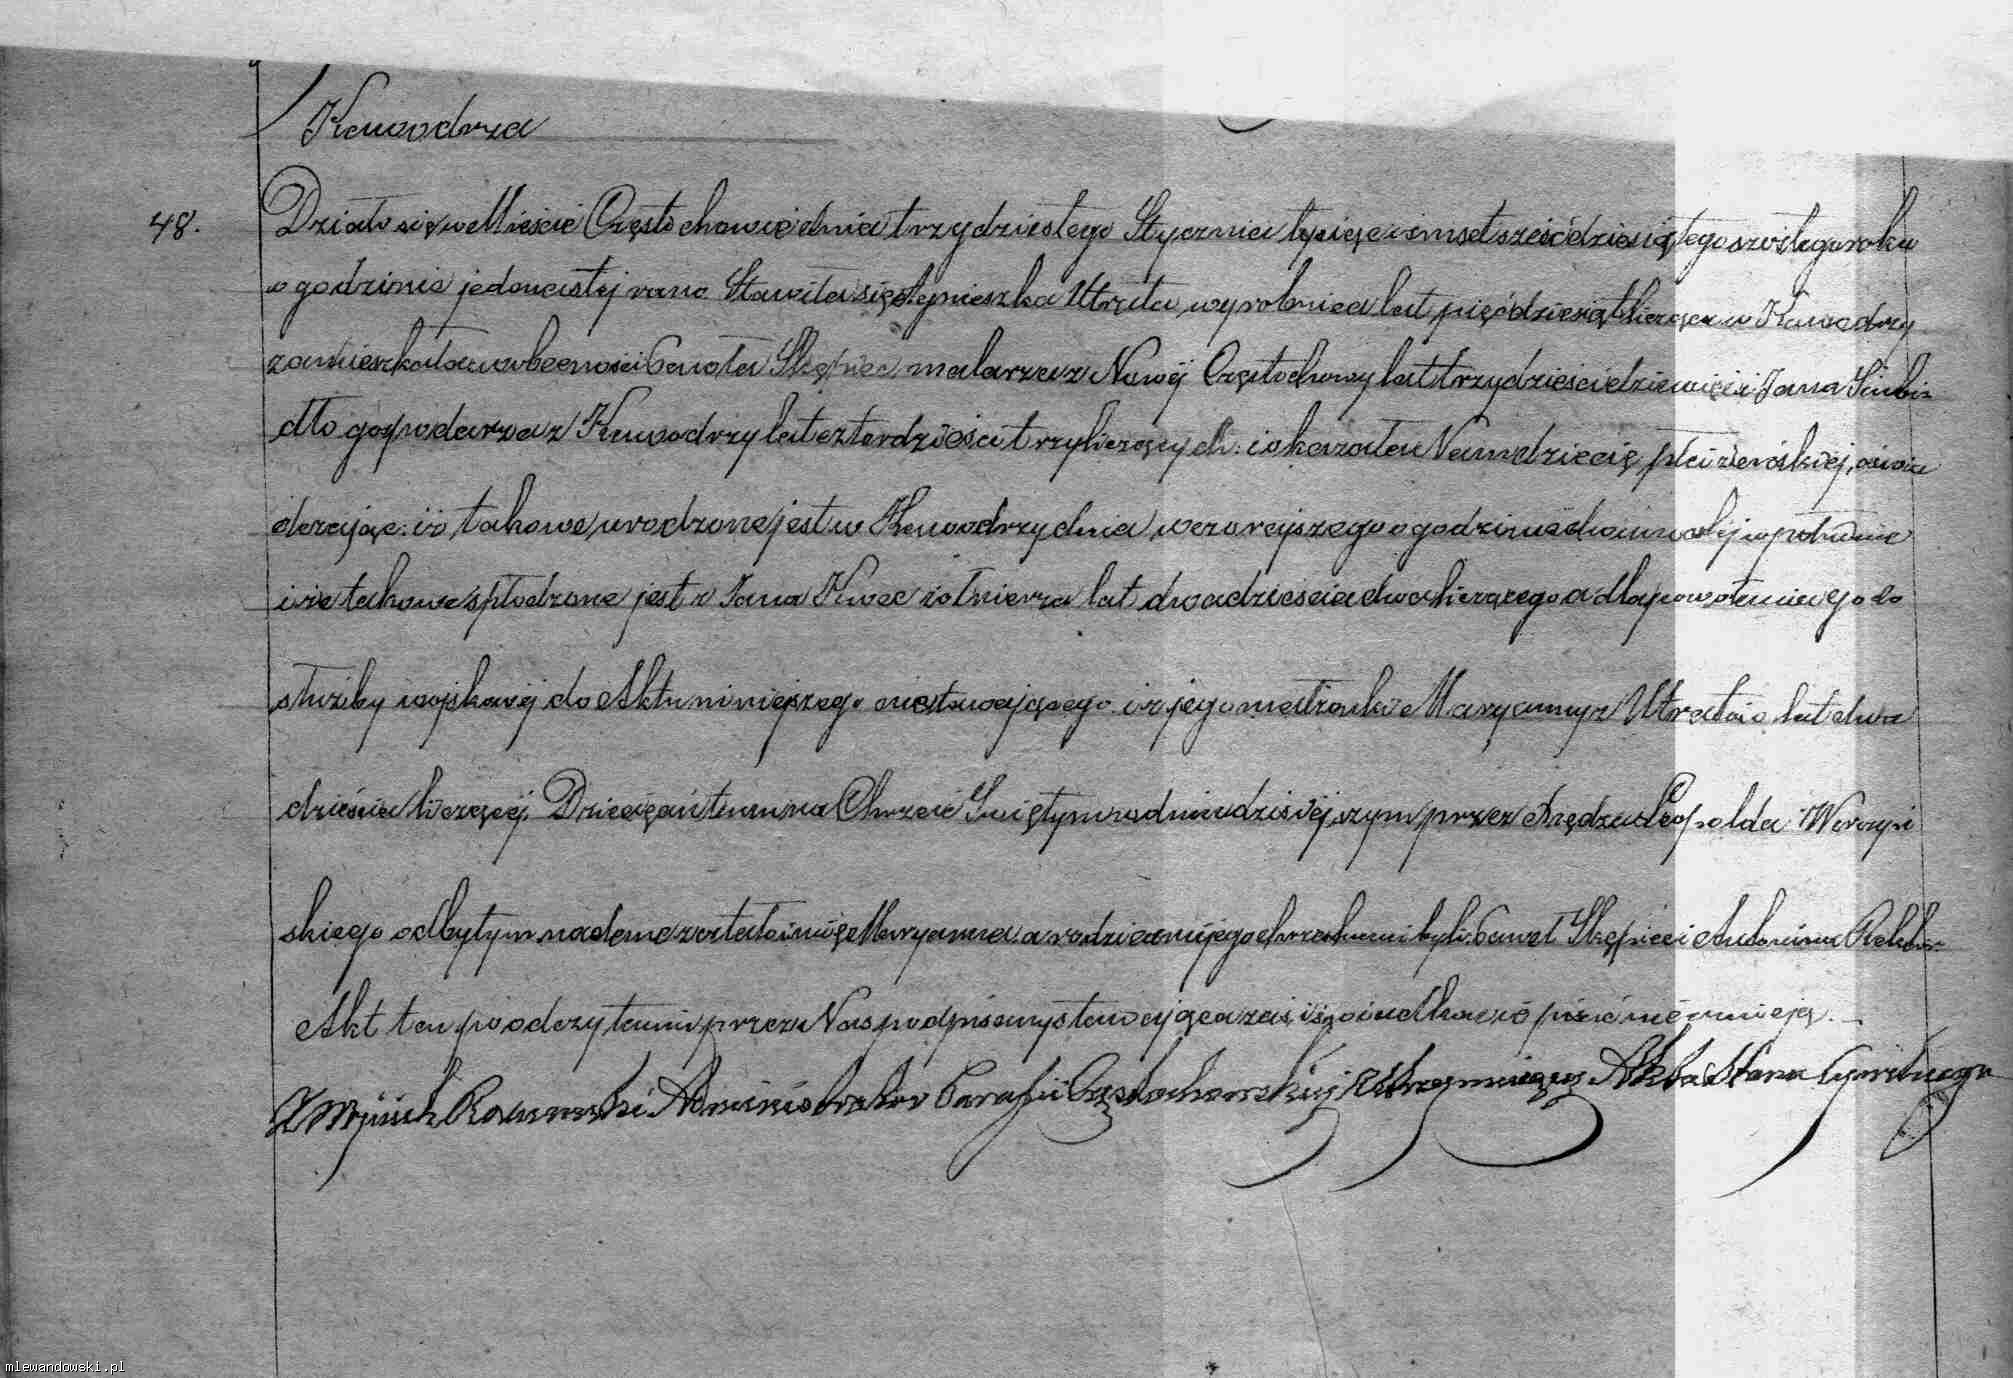 Kawodrza
48.
Działo się w Mieście Częstochowie dnia trzydziestego Stycznia tysiąc ośmset sześćdziesiątego szóstego roku
o godzinie jedenastej rano Stawiła się Agnieszka Utrata, wyrobnica lat pięćdziesiąt licząca w Kawodrzy
zamieszkała w obecności Pawła Skępiec, malarza z Nowej Częstochowy lat trzydzieści dziewięć i Jana
dło gospodarza z Kawodrzy lat czterdzieści trzy liczących. i okazała Nam dziecię płci żeńskiej, oświa
dczając: iż takowe urodzone jest w Kawodrzy dnia wczorajszego o godzinie dwunastej w południe
i że takowe spłodzone jest z Jana Kwec żołnierza lat dwadzieścia dwa liczącego a dla powołania go do
służby wojskowej do Aktu niniejszego niestawającego. i z jego małżonki Maryanny z Utratów lat dwa
dzieścia liczącej. Dziecięciu temu na Chrzcie Świętym w dniu dzisiejszym przez Księdza Leopolda
skiego odbytym, nadane zostało imię Maryanna. a rodzicami jego chrzestnemi byli: Paweł Skępiec i Antonina
Akt ten po odczytaniu przez Nas podpisany stawająca zaś i świadkowie pisać nie umieją. —
X Wojciech Administrator Parafii Częstochowskiej utrzymujący Akta Stanu Cywilnego
mlewandowski.pl